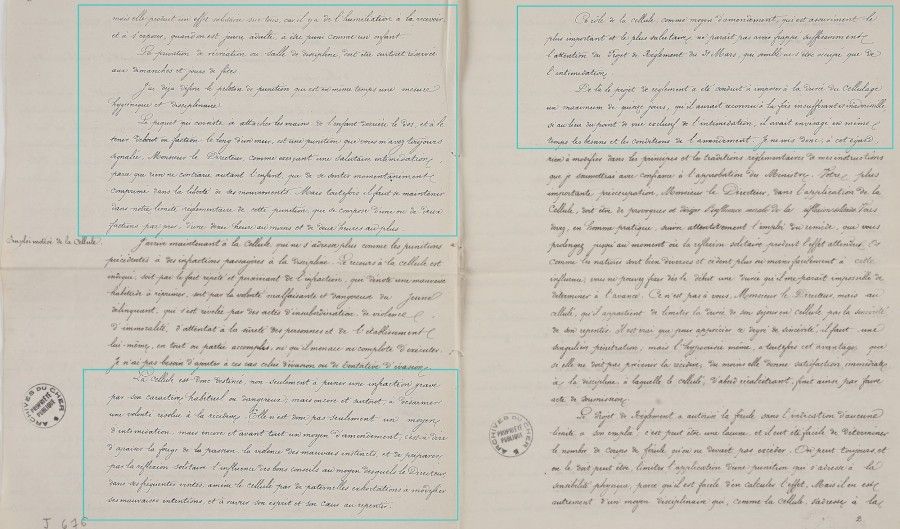 mais elle produit un effet salutaire sur tous, car il y a de l'humiliation à la recevoir
et à s'exposer, quand on est jeune adulte, à être puni comme un enfant.
La privation de récréation en salle de discipline, doit être surtout réservée
aux dimanches et jours de fêtes.
J'ai déjà défini le peloton de punition qui est en même temps une mesure
hygiénique et disciplinaire.
Le piquet qui consiste à attacher les mains de l'enfant derrière le dos, et à le
tenir debout en faction le long d'un mur, est une punition que vous m'avez toujours
signalée, Monsieur le Directeur, comme exerçant une salutaire intimidation,
parce que rien ne contrarie autant l'enfant, que de se sentir momentanément
comprimé dans la liberté de ses mouvements. Mais toutefois il faut se maintenir
dans notre limite réglementaire de cette punition, qui se compose d'une ou de deux
factions par jour, d'une demi-heure au moins et de deux heures au plus.
Emploi motivé de la Cellule.
J'arrive maintenant à la Cellule, qui ne s'adresse plus comme les punitions
précédentes à des infractions passagères à la discipline. Le recours à la cellule est
motivé, soit par le fait répété et persévérant de l'infraction, qui dénote une mauvaise
habitude à réprimer, soit par la volonté malfaisante et dangereuse du jeune
délinquant, qui s'est révélée par des actes d'insubordination, de violence,
d'immoralité, d'attentat à la sûreté des personnes et de l'établissement
lui-même, en tout ou partie accomplis, ou qu'il menace ou complote d'exécuter.
Je n'ai pas besoin d'ajouter à ces cas celui d'évasion ou de tentative d'évasion.
La Cellule est donc destinée, non seulement à punir une infraction grave
par son caractère habituel ou dangereux; mais encore et surtout à désarmer
une volonté résolue à la récidive. Elle n'est donc pas seulement un moyen
d'intimidation, mais encore et avant tout un moyen d'amendement, c'est-à-dire
d'apaiser la fougue de la passion, la violence des mauvais instincts et de préparer
par la réflexion solitaire l'influence des bons conseils au moyen desquels le Directeur
dans ses fréquentes visites, amène le cellulé par de paternelles exhortations à modifier
ses mauvaises intentions, et à ouvrir son esprit et son cœur au repentir.
ARCHIVES DU CHER
PROPRIÉTÉ PUBLIQUE
J 676
Ce rôle de la cellule, comme moyen d'amendement, qui est assurément le
plus important et le plus salutaire, ne paraît pas avoir frappé suffisamment
l'attention du Projet de Règlement du 31 Mars, qui semble ne s'être occupé que de
l'intimidation.
De là le projet de règlement a été conduit à imposer à la durée du Cellulage
un maximum de quinze jours, qu'il aurait reconnu à la fois insuffisant et inadmissible,
si au lieu du point de vue exclusif de l'intimidation, il avait envisagé en même
temps les besoins et les conditions de l'amendement. Je ne vois donc, à cet égard
rien à modifier dans les principes et les traditions réglementaires de mes instructions
que je soumettrai avec confiance à l'approbation du Ministre. Votre plus
importante préoccupation, Monsieur le Directeur, dans l'application de la
Cellule, doit être de provoquer et diriger l'influence morale de la réflexion solitaire. Vous
devez, en homme pratique, suivre attentivement l'emploi du remède, que vous
prolongez jusqu'au moment où la réflexion solitaire produit l'effet attendu. Or
comme les natures sont bien diverses et cèdent plus ou moins facilement à cette
influence, vous ne pouvez fixer dès le début une durée qu'il me paraît impossible de
déterminer à l'avance. Ce n'est pas à vous, Monsieur le Directeur, mais au
cellulé, qu'il appartient de limiter la durée de son séjour en cellule par la sincérité
de son repentir. Il est vrai que pour apprécier ce degré de sincérité, il faut une
singulière pénétration, mais l'hypocrisie même, a toutefois cet avantage, que
si elle ne doit pas prévenir la récidive, du moins elle donne satisfaction immédiate
à la discipline, à laquelle le cellulé, d'abord récalcitrant, finit ainsi par faire
acte de soumission.
Le Projet de Règlement a autorisé la férule sans l'indication d'aucune
limite à son emploi; c'est peut-être une lacune, et il eut été facile de déterminer
le nombre de coups de férule qu'on ne devait pas excéder. On peut toujours, et
on le doit peut-être, limiter l'application d'une punition qui s'adresse à la
sensibilité physique, parce qu'il est facile d'en calculer l'effet. Mais il en est
autrement d'un moyen disciplinaire qui, comme la Cellule, s'adresse à la
ARCHIVES DU CHER
PROPRIÉTÉ PUBLIQUE
2.